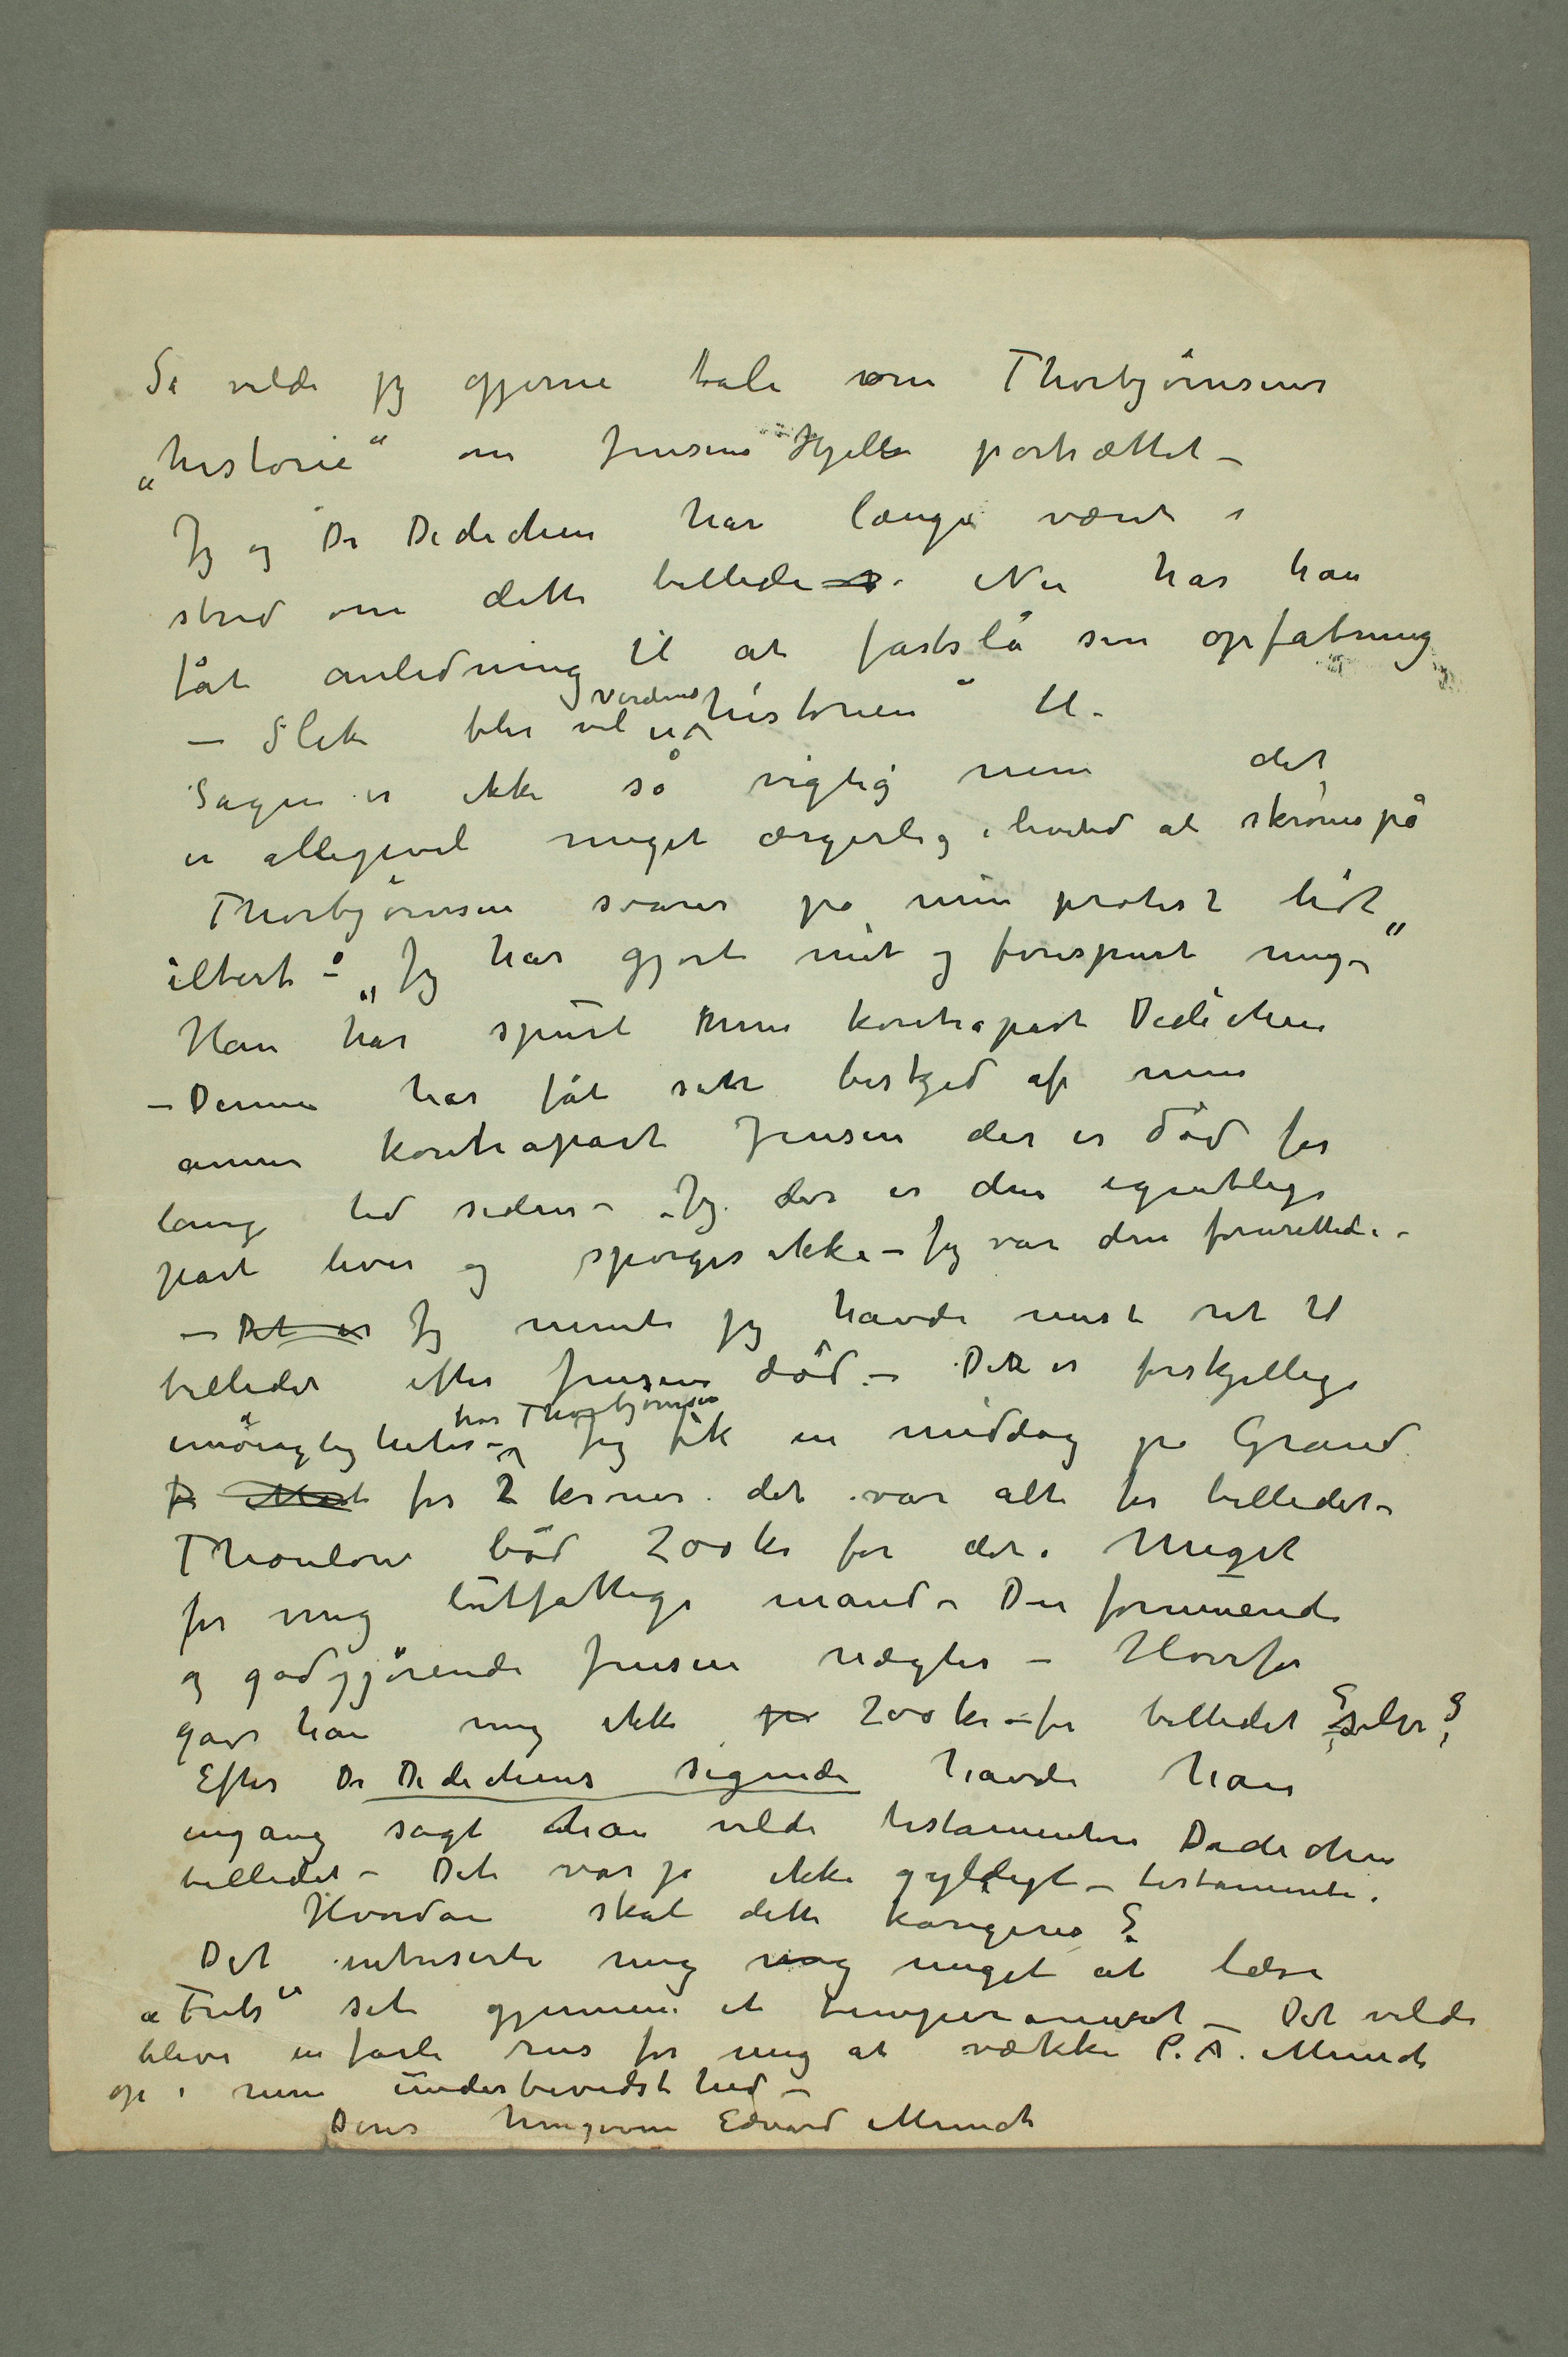 Så vilde jeg gjerne tale om Thorbjørnsens
„historie“ om Jensens Hjells portrættet –
Jeg og Dr Dedichen har længe været i
strid om dette billede. Nu har han
fåt anledning til at fastslå sin opfatning
– Slik blir vel „verdenshistorien“ til.
Sagen er ikke så vigtig men det
er alligevel meget ærgerlig i levetid at skrønes på
Thorbjørnsen svarer på min protest lidt
iltert – „Jeg har gjort mit og forespurt mig –“
Han har spurt min kontrapart Dedichen
– Denne har fåt sitt beskjed af min
annen kontrapart Jensen der er død for
lang tid siden – Jeg der er den egentlige
part lever og spørges ikke – Jeg var den forurettede –
– Det er Jeg mente jeg havde mest ret til
billedet efter Jensens død. – Det er forskjellige
unøiagtigheter hos Thorbjørnsen – Jeg fik en middag på Grand
for 2 kroner. det var alt for billedet –
Thaulow bød 200 kr for det. Meget
for mig lutfattige mand – Den formuende
og godgjørende Jensen nægter – Hvorfor
gav han mig ikke 200 kr – for billedet selv?
Efter Dr Dedichens sigende havde han
engang sagt han vilde testamentere Dedichen
billedet – Det var jo ikke gyldigt – testamente.
Hvordan skal dette korigeres?
Det intreserte mig meget at læse
„Frits“ set gjennem et temperament – Det vilde
blive en farlig rus for mig at vække P.A. Munch
op i min underbevidsthed –
Deres hengivne Edvard Munch